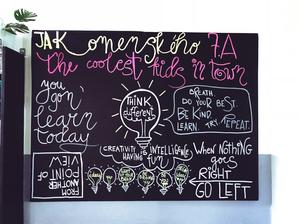 JAK Komenského 7A
The coolest kids in town
you
gon'
learn
today
THINK
different
BREATH.
DO YOUR BEST.
BE KIND.
LEARN. TRY. REPEAT.
CREATIVITY IS INTELLIGENCE
HAVING fun
WHEN NOTHING
goes
RIGHT
GO LEFT
FROM
ANOTHER
POINT OF
VIEW